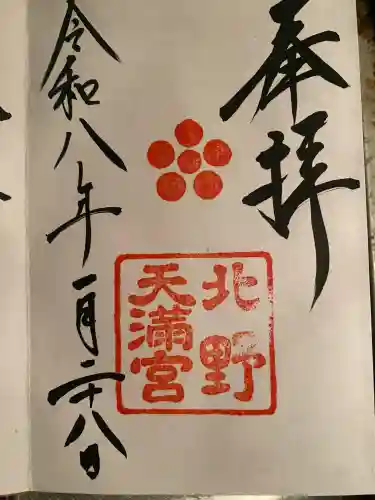 奉拝
北野
天満宮
令和八年一月二十八日